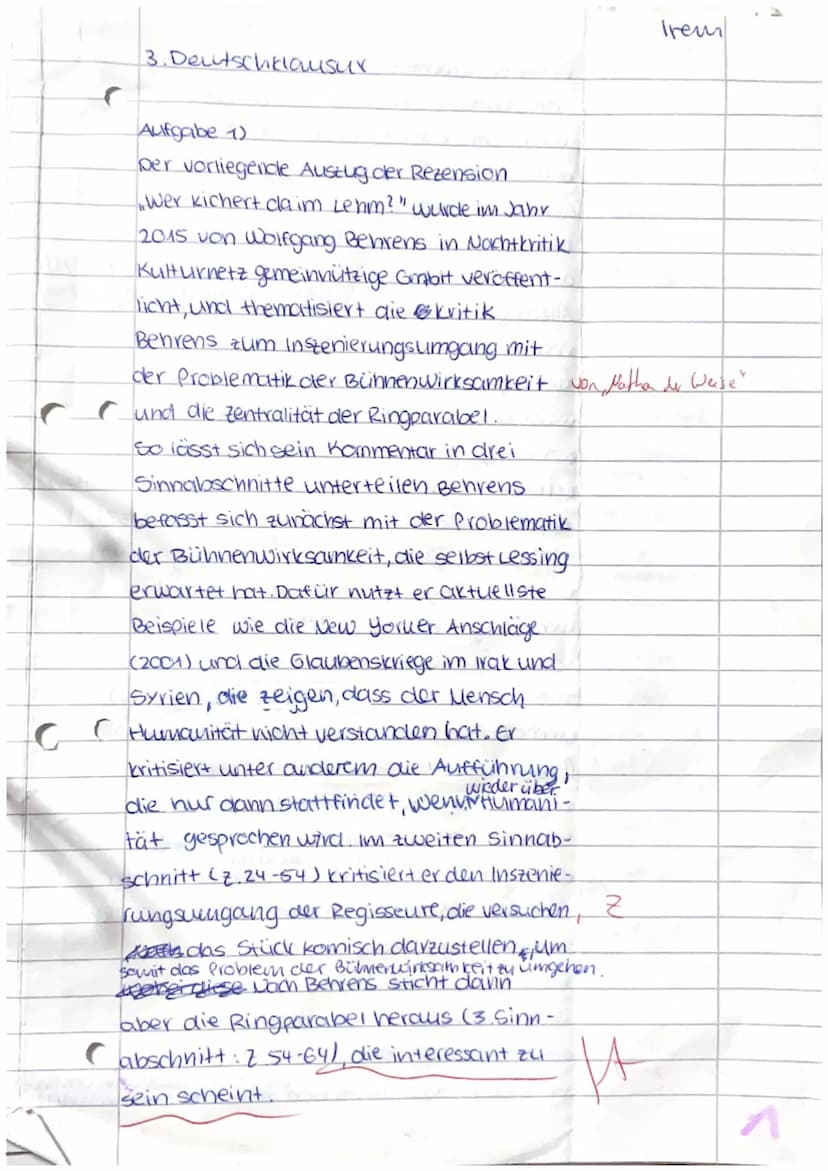 Irem
3. Deutschklausur
Aufgabe 1)
Der vorliegende Auszug der Rezension
„Wer kichert da im Lehm?" wurde im Jahr
2015 von Wolfgang Behrens in Nachtkritik
Kulturnetz gemeinnützige GmbH veröffent-
licht, und thematisiert die Kritik
Behrens zum Inszenierungsumgang mit
der Problematik der Bühnenwirksamkeit von „Nathan der Weise"
und die Zentralität der Ringparabel.
So lässt sich sein Kommentar in drei
Sinnabschnitte unterteilen. Behrens
befasst sich zunächst mit der Problematik
der Bühnenwirksamkeit, die selbst Lessing
erwartet hat. Dafür nutzt er aktuellste
Beispiele wie die New Yorker Anschläge
(2001) und die Glaubenskriege im Irak und
Syrien, die zeigen, dass der Mensch
Humanität nicht verstanden hat. Er
kritisiert unter anderem die Aufführung,
die nur dann stattfindet, wenn wieder über Humani-
tät gesprochen wird. Im zweiten Sinnab-
schnitt (Z. 24-54) kritisiert er den Inszenie-
rungsumgang der Regisseure, die versuchen, Z
das Stück komisch darzustellen, um
somit das Problem der Bühnenwirksamkeit zu umgehen.
Nach Behrens sticht dann
aber die Ringparabel heraus (3. Sinn-
abschnitt: Z 54-64), die interessant zu
sein scheint.
A
1